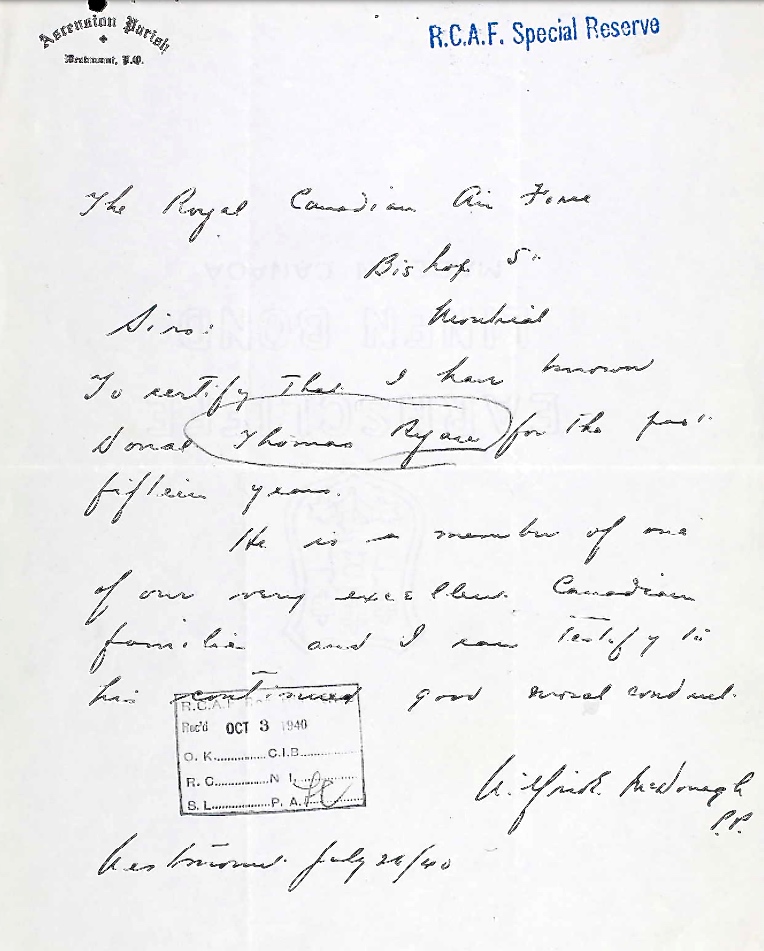 Ascension Parish
Westmount, P.Q.
R.C.A.F. Special Reserve
The Royal Canadian Air Force
Bishop St.
Montreal
Sirs:
To certify that I have known
Donal Thomas for the past
fifteen years.
He is a member of one
of our very excellent Canadian
families and I can testify to
his continued good moral conduct.
R.C.A.F.
Rec'd OCT 3 1940
O. K. C.I.B.
R. C. N I.
S. L. P. A.
Wilfrid McDonagh
P.P.
Westmount July /40